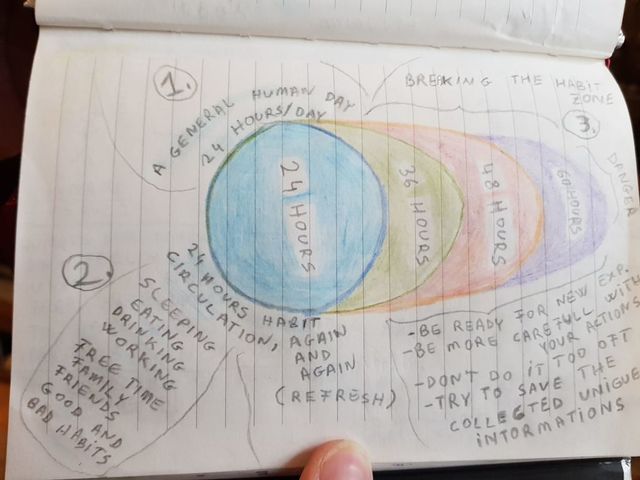 1.
A GENERAL HUMAN DAY
24 HOURS/DAY
BREAKING THE HABIT
ZONE
3.
DANGER
24 HOURS
36 HOURS
48 HOURS
60 HOURS
2.
24 HOURS HABIT
CIRCULATION,
AGAIN
AND
AGAIN
(REFRESH)
SLEEPING
EATING
DRINKING
WORKING
FREE TIME
FAMILY
FRIENDS
GOOD AND
BAD HABITS
-BE READY FOR NEW EXP.
-BE MORE CAREFULL WITH
YOUR ACTIONS
-DON'T DO IT TOO OFT
-TRY TO SAVE THE
COLLECTED UNIGUE
INTORMATIONS